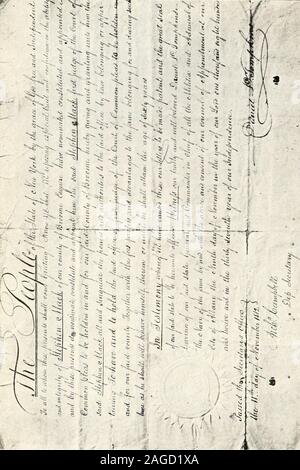 The People of the State of New York by the grace of God free and Independent
To all to whom these presents shall come Greeting Know ye that We reposing especial trust and confidence in the ability
and integrity of Stephen Mack of our county of Broome Esquire have nominated constituted and appointed
and by these presents do nominate constitute and appoint him the said Stephen Mack first judge of the Court of
Common Pleas to be holden in and for our said county of Broome hereby giving and granting unto him the
said Stephen Mack all and singular the powers and authorities to the said office by law belonging or apper-
taining To have and to hold the said office of first judge of the Court of Common pleas to be holden in
and for our said county together with the fees profits and advantages to the same belonging for and during such
time as he shall well behave himself therein or until he shall attain the age of sixty years
In Testimony whereof We have caused these our letters to be made patent and the great seal
of our said state to be hereunto affixed Witness our trusty and well beloved Daniel D. Tompkins
Governor of our said state general and commander in chief of all the militia and admiral of
the navy of the same by and with the advice and consent of our council of appointment at our
city of Albany the Ninth day of November in the year of our Lord one thousand eight hundred
and twelve and in the thirty seventh year of our Independence.
Daniel D. Tompkins
Passed the Secretary's office
the 11th day of November 1812
Archd Campbell
Dep Secretary
alamy
Image ID: 2AGD1XA
www.alamy.com